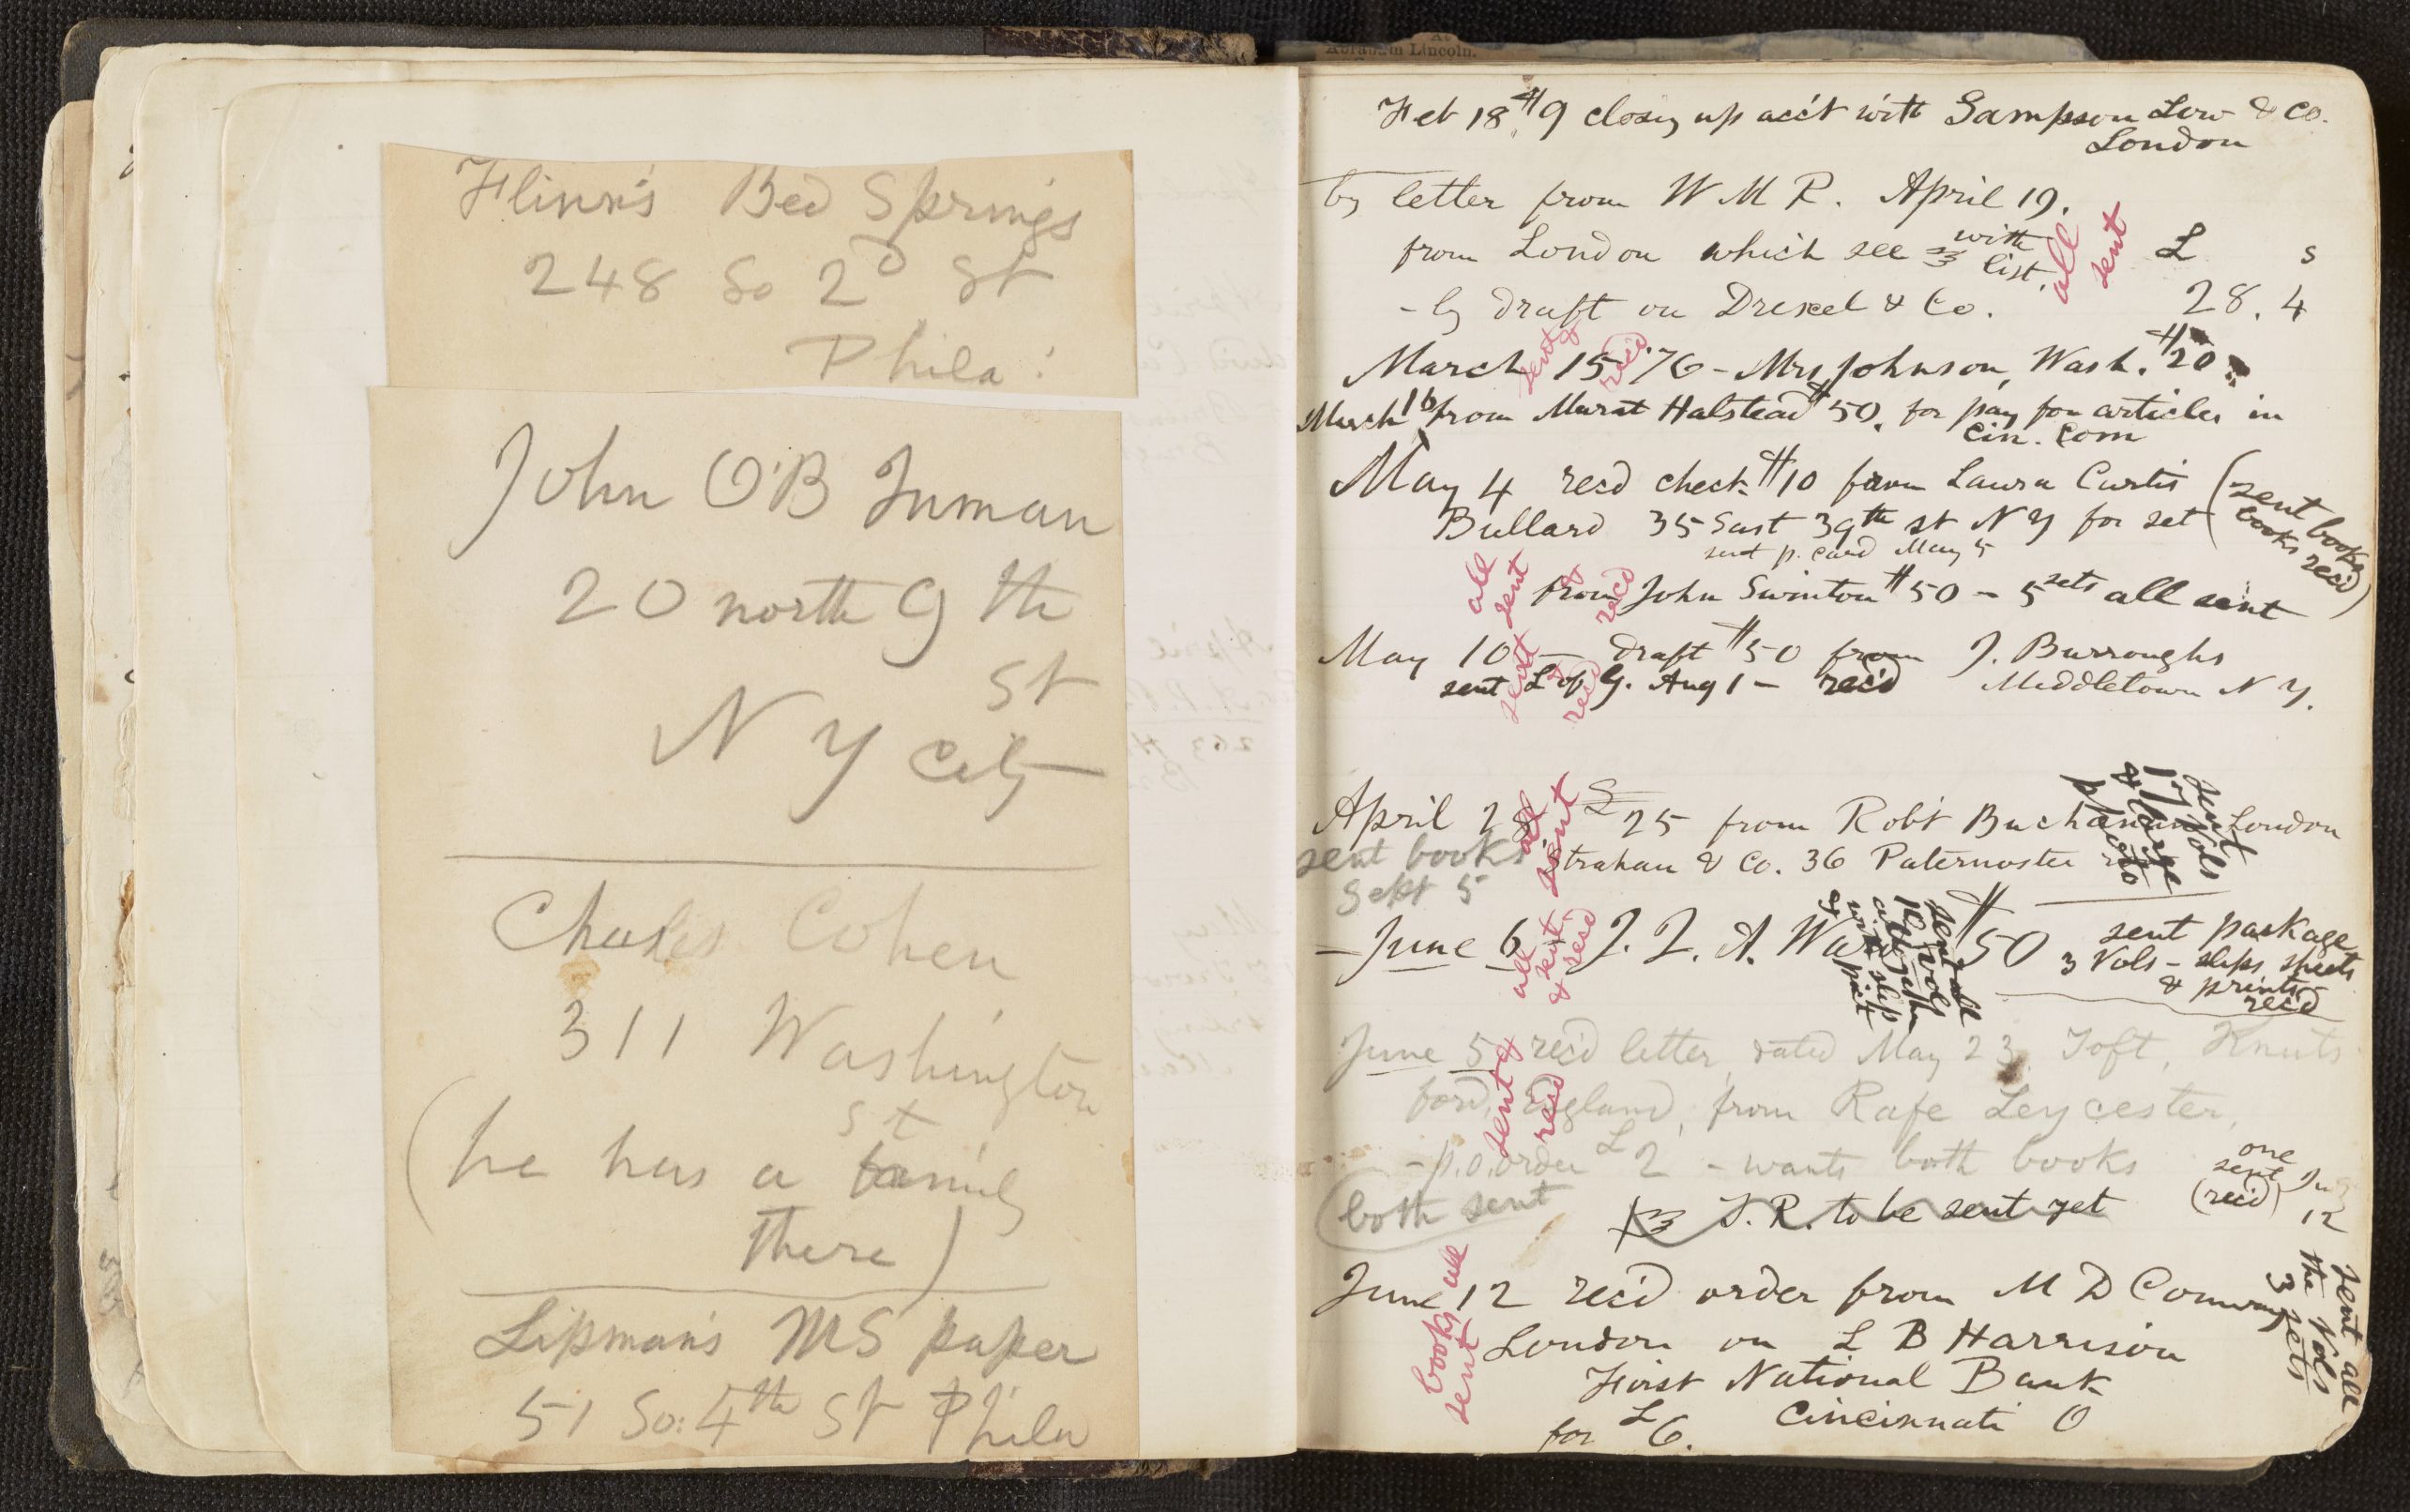 Flinn's Bed Springs
248 So 2d St
Phila:
John O'B Inman
20 north 9th
St
N Y City
Charles Cohen
311 Washington
St
(he has a family
there)
Lipman's MS paper
51 So: 4th St Phila
At
Abraham Lincoln.
Feb 18 $9 closing up acc't with Sampson Low & Co.
London
by letter from W M R. April 19.
from London which see with
list.
all
sent
£ s
- by draft on Drexel & Co. 28. 4
March 15 '76 - Mrs Johnson, Wash. $20
sent &
rec'd
March 16 from Murat Halstead $50. for pay for articles in
Cin. Com
May 4 recd check $10 from Laura Curtis
Bullard 35 East 39th st N Y for set
(sent books
books rec'd)
sent p. card May 5
all
sent
&
recd
from John Swinton $50 - 5 sets all sent
May 10 - draft $50 from J. Burroughs
sent L of G. Aug 1 - rec'd Middletown N Y.
sent
&
rec'd
April 28 £25 from Rob't Buchanan London
Strahan & Co. 36 Paternoster
sent books
Sept 5
all
sent
sent
17 Vols
& large
photo
- June 6 J. L. A. Ward $50
all
sent
& recd
sent all
10 vol
with slip
pict
sent package
3 Vols - slips, sheets
& prints
rec'd
June 5 rec'd letter, dated May 23 Toft, Knuts
ford, England, from Rafe Leycester,
- p.o. order £2 - wants both books
sent &
rec'd
(both sent
T. R. to be sent yet
one
sent
(rec'd)
12
June 12 rec'd order from M D Conway
London on L B Harrison
First National Bank
Cincinnati O
for £6.
books all
sent
sent all
the Vols
3 sets